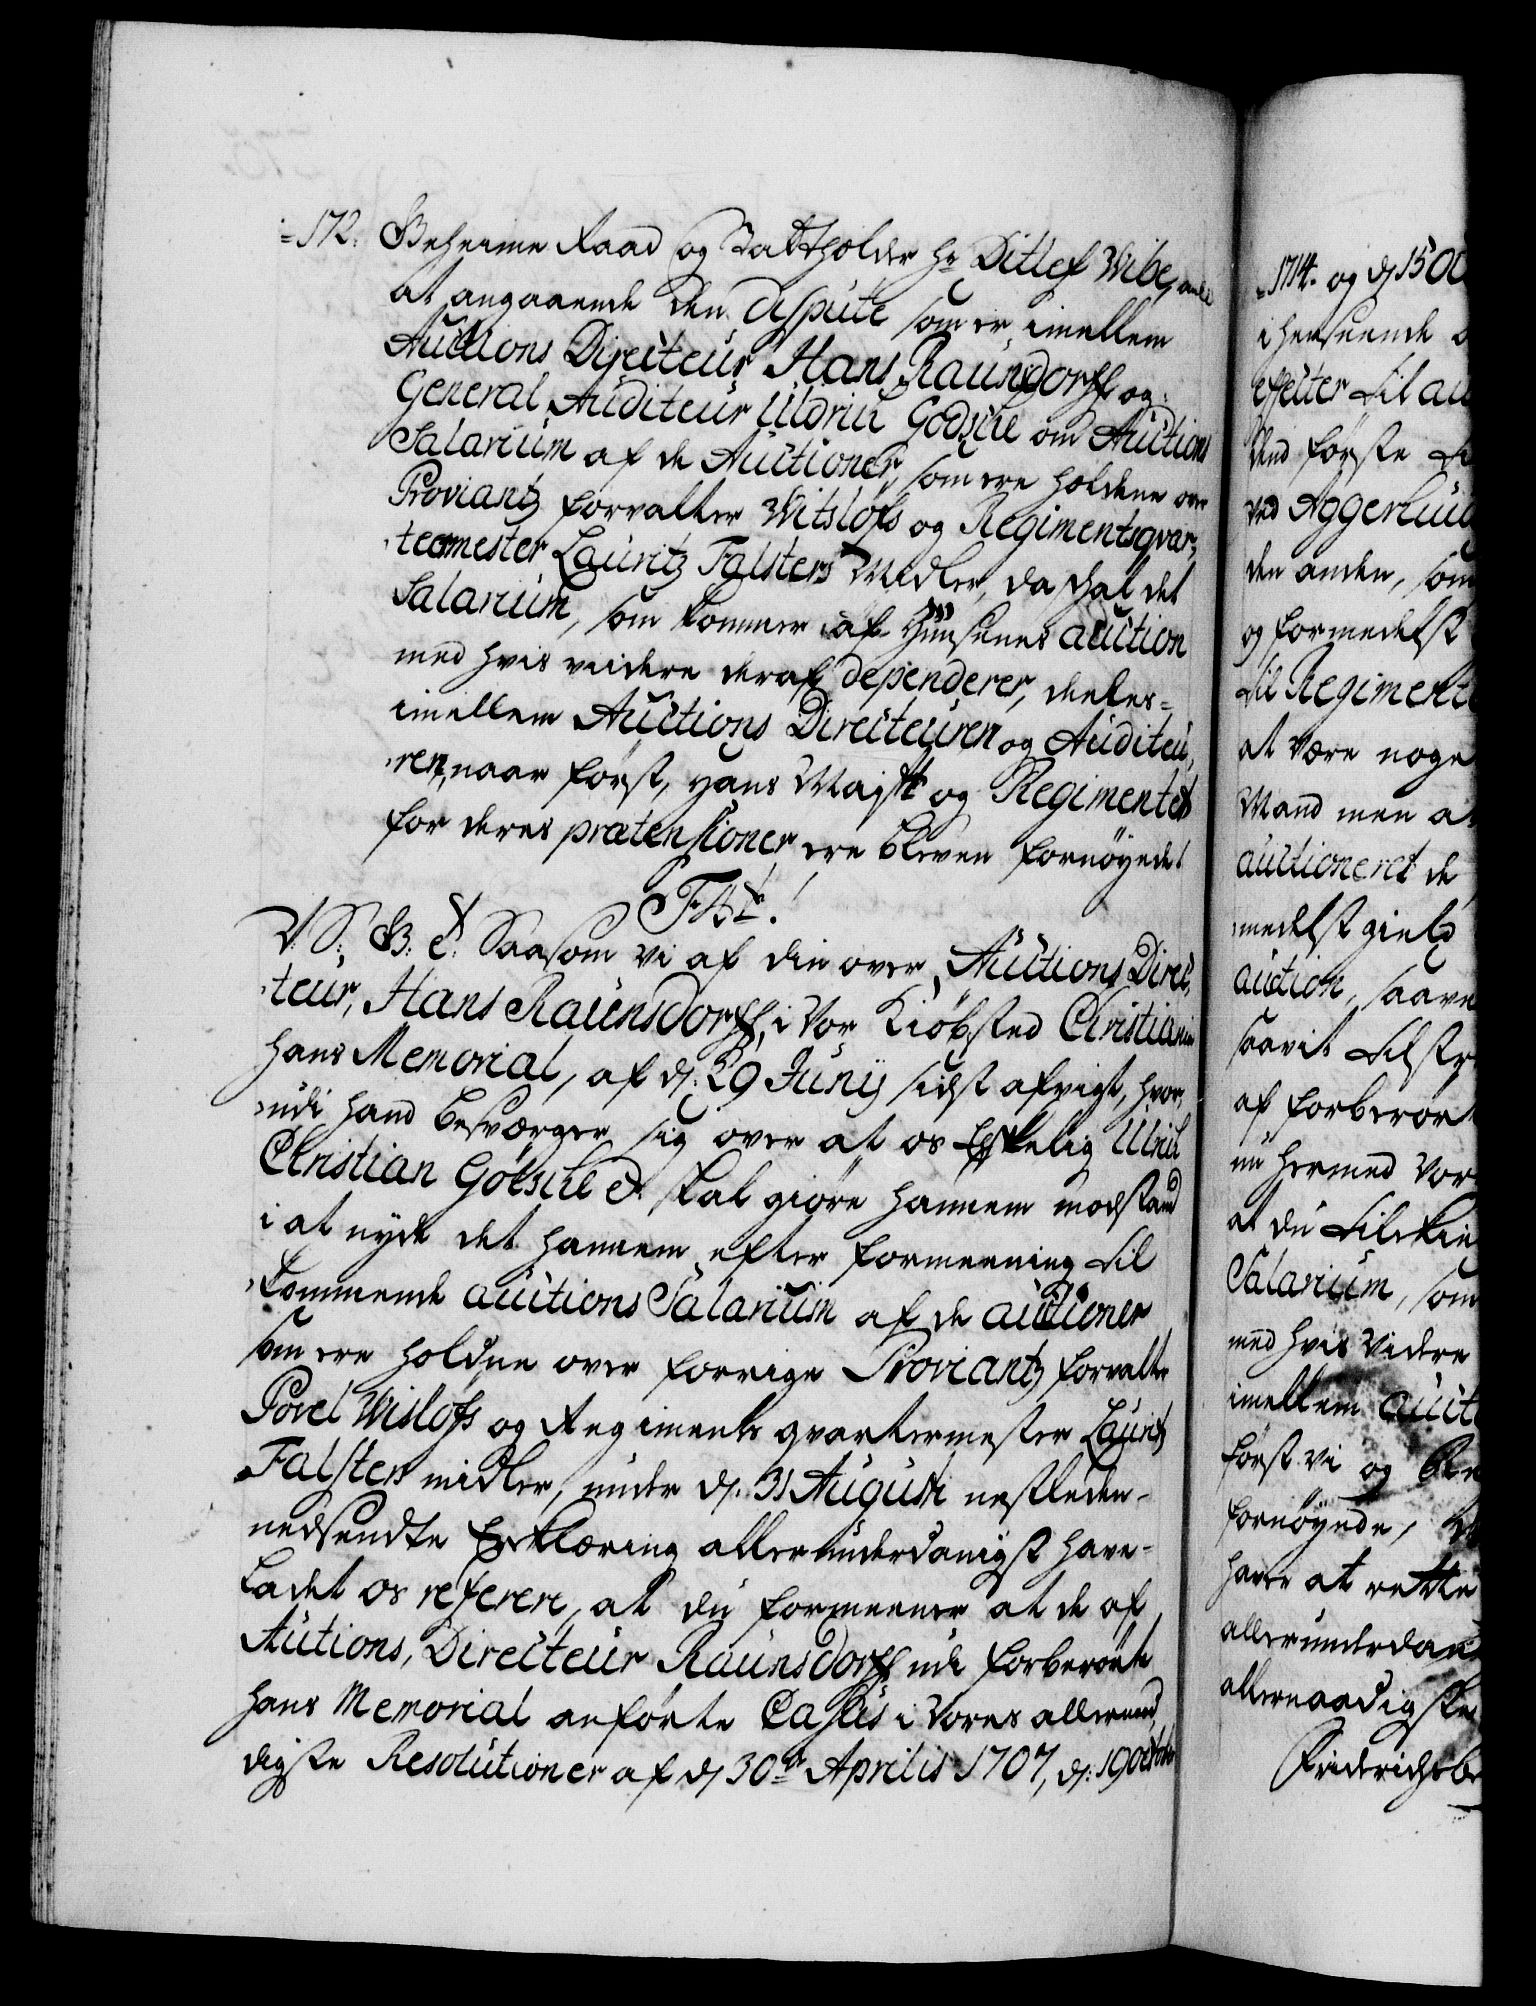 =172. Geheime Raad og Stattholder hr Ditlef Wibe, anl.
at angaaende den dispute som er imellem
Auctions Directeur Hans Raunsdorff og
General Auditeur Uldrich Godsche om Auctions
Salarium af de Auctioner, som ere holdene over
Proviantz forvalter Witsløfs og Regimentsqvar,,
,,teermester Lauritz Falsters Midler, da skal det
Salarium, som kommer af Huusenes auction
med hvis viidere deraf dependerer, deeles =
imellem Auctions Directeuren og Auditeu,,
,,ren, naar først, hans Majst og Regimentet
for deres prætensioner ere bleven fornøyede!
F 4t.
V. S. G. T. Saasom vi af din over Auctions Direc,,
,,teur, Hans Raunsdorff, i Vor Kiøbsted Christiania
hans Memorial, af d. 29 Junij sidst afvigt, hvor,,
,,udi hand besværger sig over at os Elskelig Ulrich
Christian Götsche &. skal giøre hannem modstand
i at nyde det hannem efter formeening til
,,kommende auctions Salarium af de auctioner
som ere holdne over forrige Proviantz forvalter
Povel Wisløfs og Regiments qvarteermester Lauritz
Falsters midler, under d. 31 Augusti nestleden =
nedsendte Erklæring allerunderdanigst have =
ladet os referere, at du formeener at de af
Auctions, Directeur Raunsdorff udi forberørte
hans Memorial anførte Casus i Vores allernaa,,
digste Resolutioner af d 30te Aprilis 1707, d. 19 Octobr
=1714. og d 15 Oc
i henseende
effecter til au
Ved første
ved Aggerhuus
den anden, som
og formedelst
til Regiment
at være noge
Mand men a
auctioneret de
medelst gield
auction, saave
saavit
af forberør
nu hermed Vor
at du tilkien
Salarium, som
med hvis videre
imellem auct
først vi og
fornøyede,
haver at rette
allerunderdan
allernaadigste
Friderichsbe